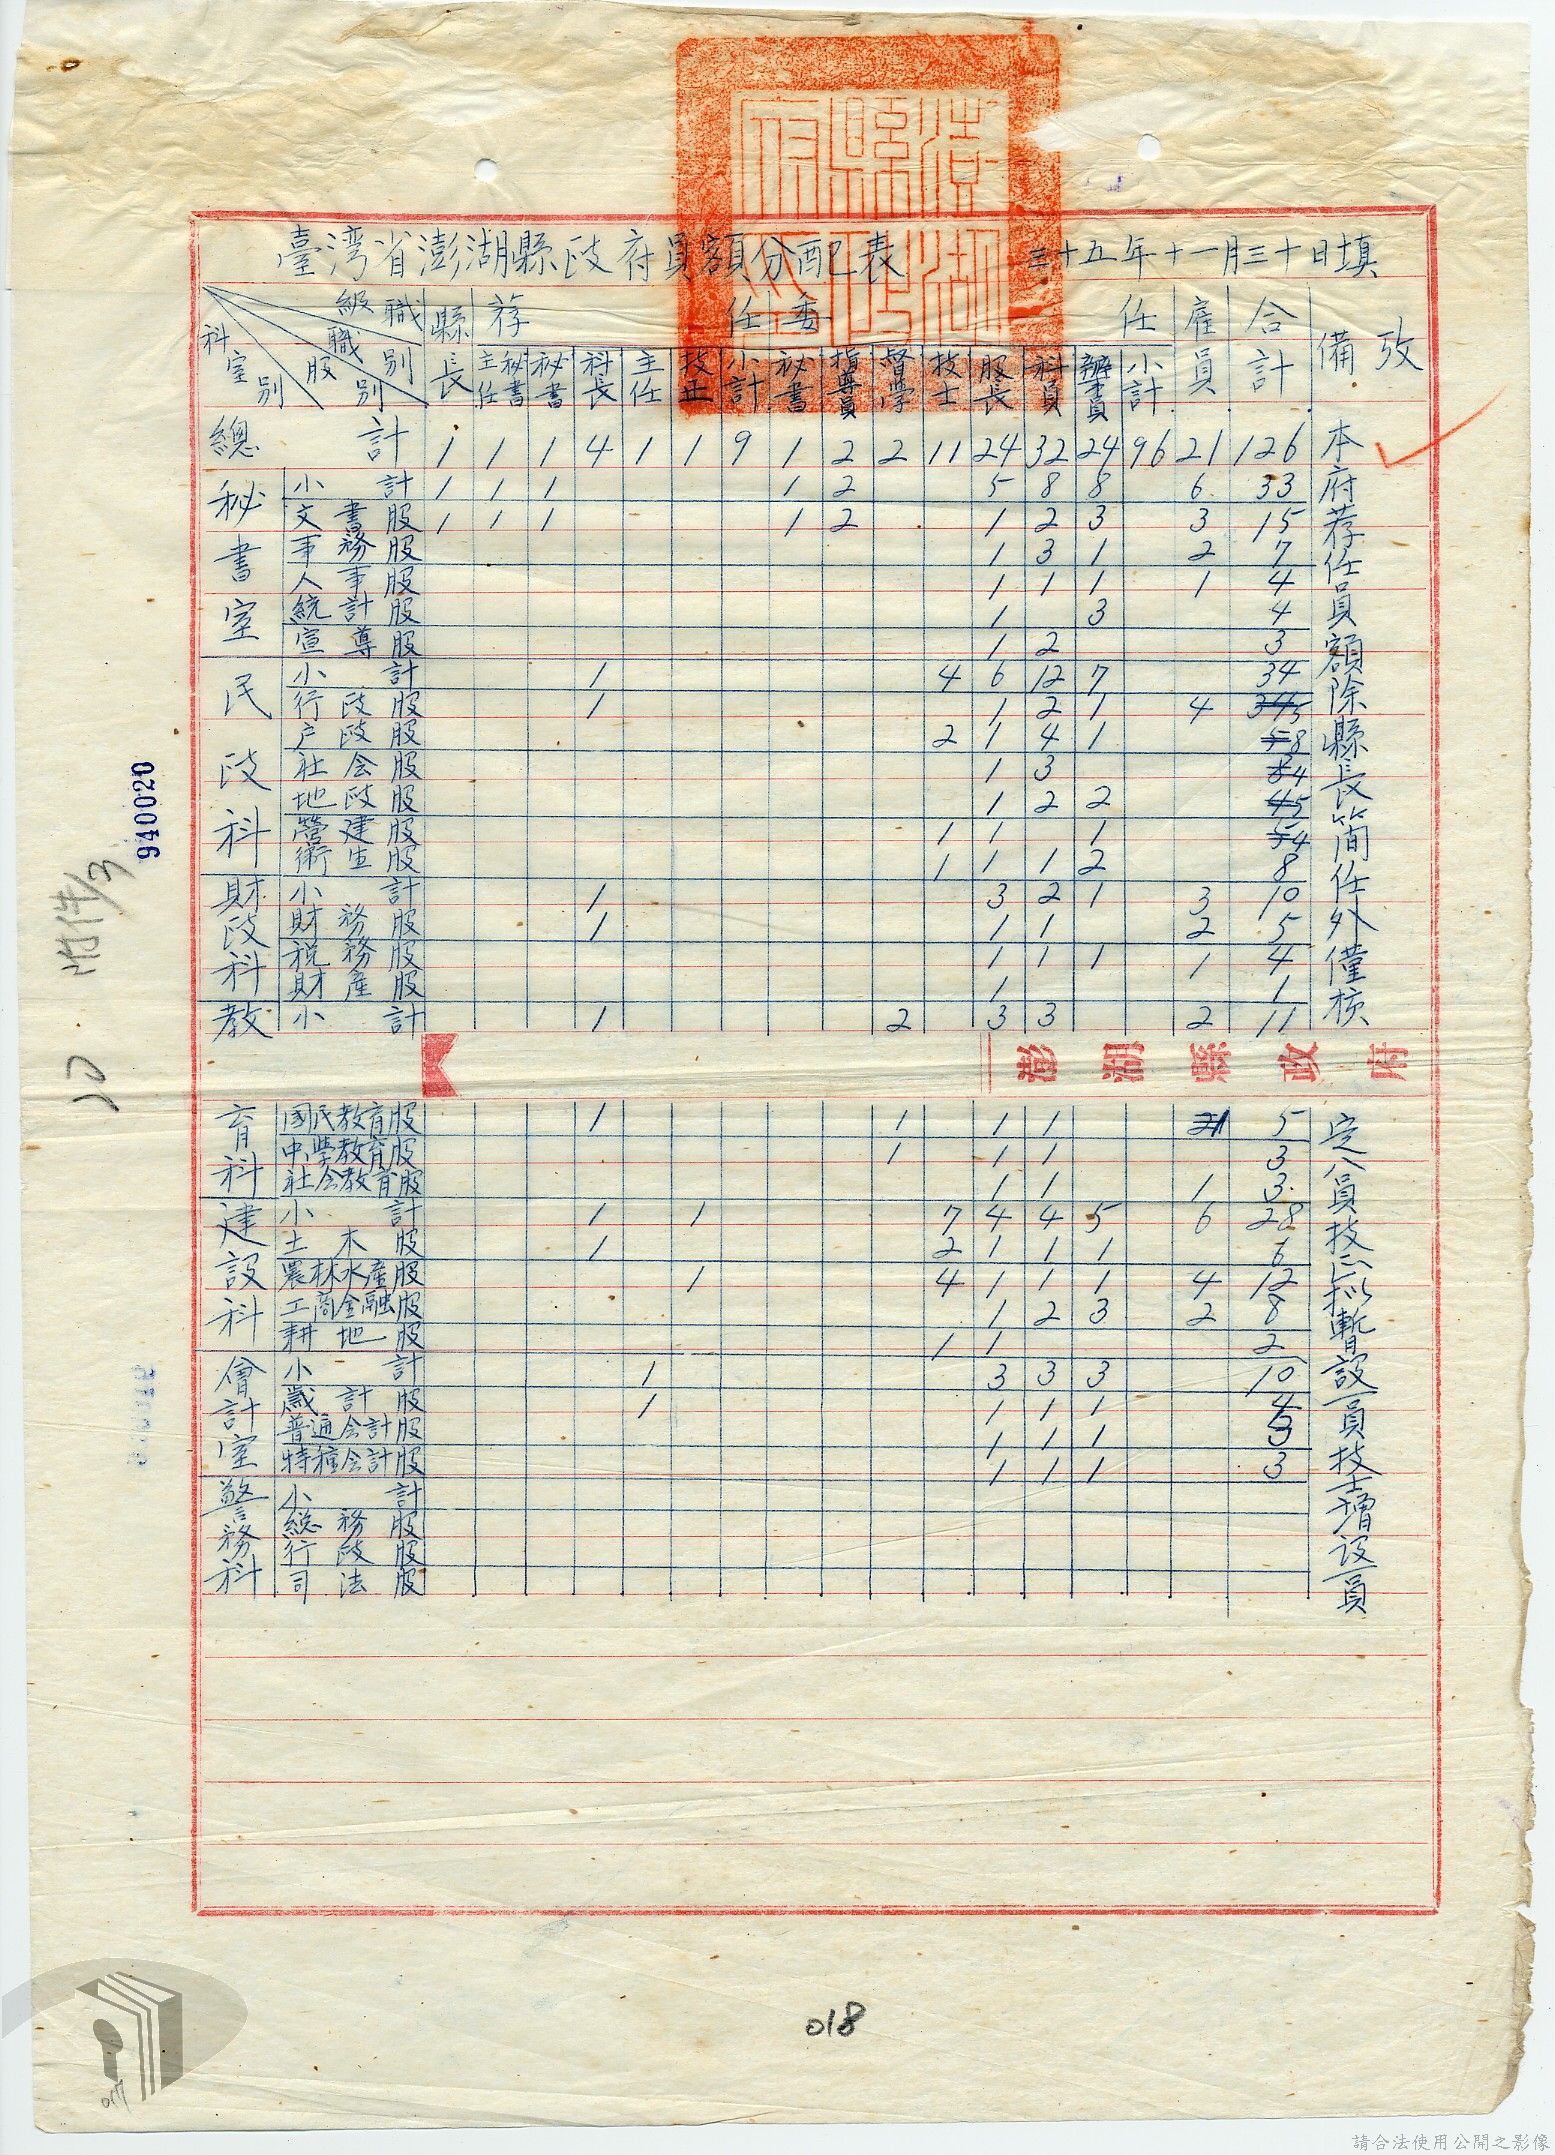 臺湾省澎湖縣政府員額分配表 三十五年十一月三十日填
級職 縣長 荐任 委任 雇員 合計 備攷
科室別 股別 職別 主任秘書 秘書 科長 主任 技正 小計 秘書 指導員 督學 技士 股長 科員 辦事員 小計
總計 1 1 1 4 1 1 9 1 2 2 11 24 32 24 96 21 126
秘書室 小計 1 1 1 1 2 5 8 8 6 33
文書股 1 1 1 1 2 1 2 3 3 15
事務股 1 3 1 2 7
人事股 1 1 1 1 4
統計股 1 3 4
宣導股 1 2 3
民政科 小計 1 4 6 12 7 34
行政股 1 1 2 1 4 5
户政股 2 1 4 1 8
社会股 1 3 4
地政股 1 2 2 5
營建股 1 1 1 4
衛生股 1 1 1 2 8
財政科 小計 1 3 2 1 3 10
財務股 1 1 1 2 5
税務股 1 1 1 1 4
財產股 1 1
教 小計 1 2 3 3 2 11
澎湖縣政府
育科 國民教育股 1 1 1 1 1 5
中學教育股 1 1 1 3
社会教育股 1 1 1 3
建設科 小計 1 1 7 4 4 5 6 28
土木股 1 2 1 1 1 6
農林水產股 1 4 1 1 1 4 12
工商金融股 1 2 3 2 8
耕地股 1 1 2
會計室 小計 1 3 3 3 10
歲計股 1 1 1 1 4
普通会計股 1 1 1 3
特種会計股 1 1 1 3
警務科 小計
総務股
行政股
司法股
本府荐任員額除縣長簡任外僅核定八員技正拟暫設一員技士增設一員
940020
附件13
20
018
017
請合法使用公開之影像